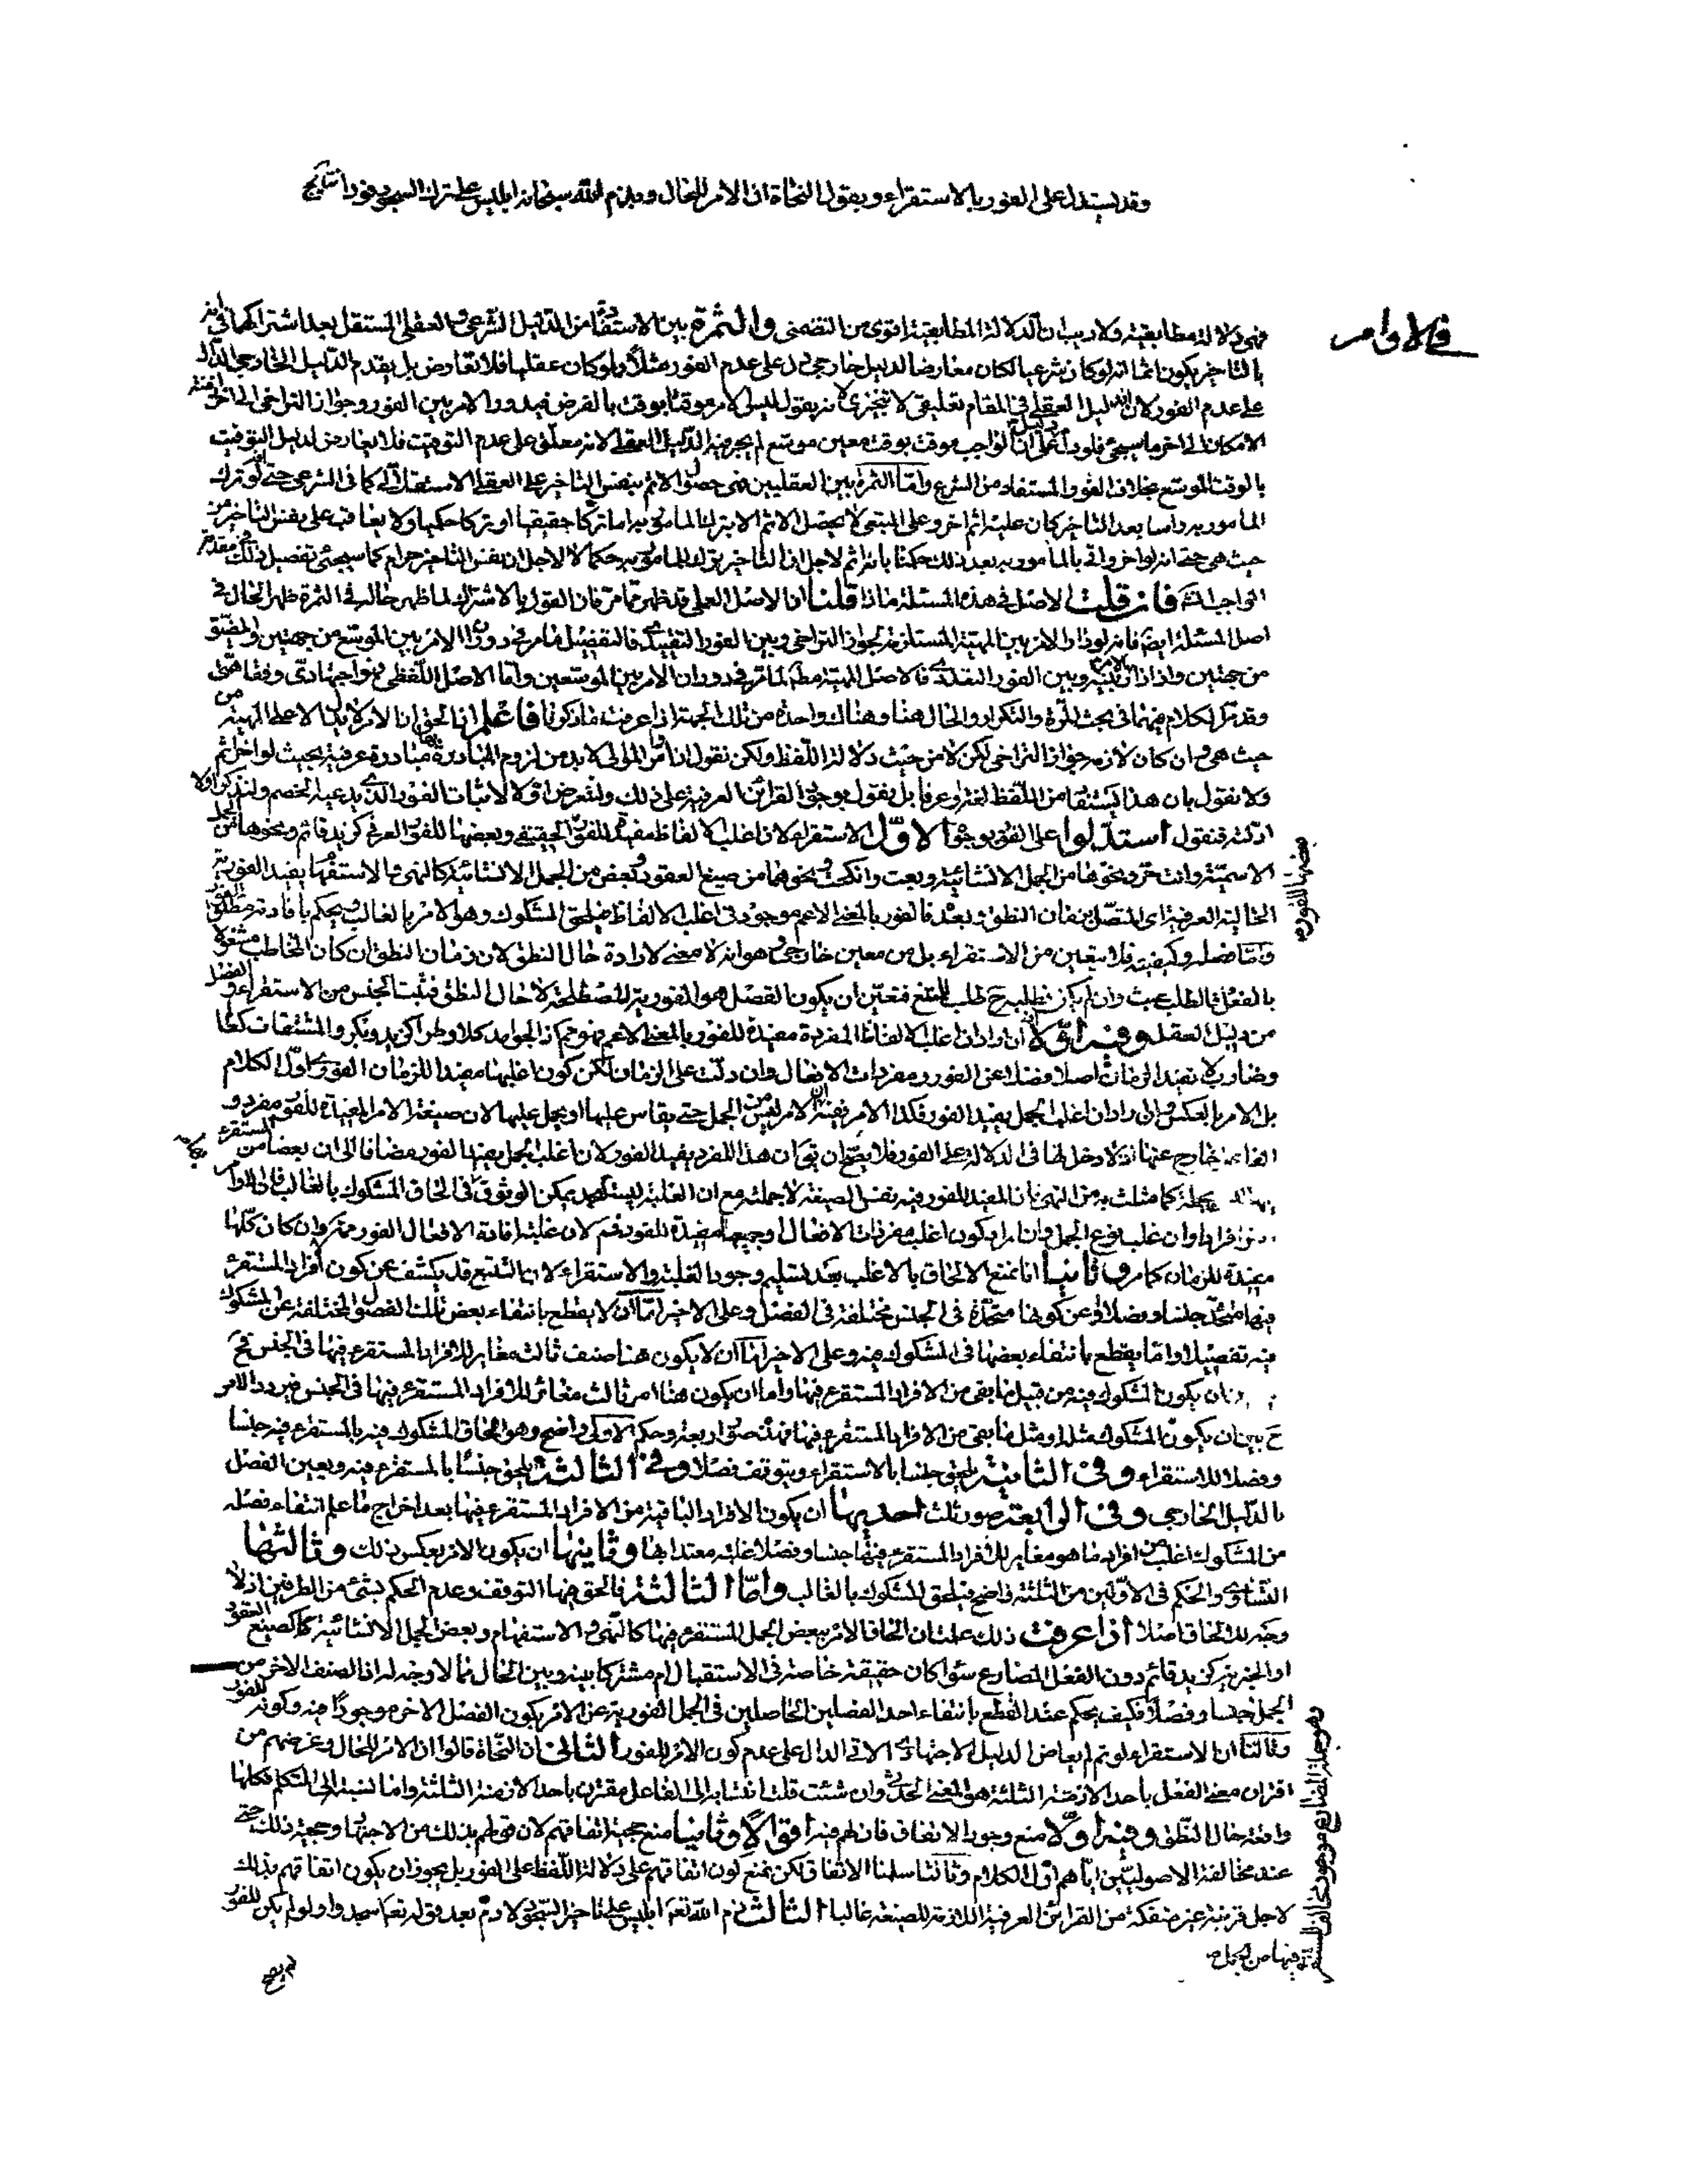 وقد يستدل على الفور بالاستقراء وبقول النحاة ان الامر للحال وبذم الله سبحانه ابليس على ترك السجود فورا نتايج
في الاوامر
فهى دلالة مطابقية ولا ريب ان الدلالة المطابقية اقوى من التضمنى والثمرة بين الاستفادة من الدليل الشرعى والعقلى المستقل بعد اشتراكهما فى انه
بالتاخير يكون اثما انه لو كان شرعيا لكان معارضا لدليل خارجى دل على عدم الفور مثلا ولو كان عقليا فلا تعارض بل يقدم الدليل الخارجى الدال
على عدم الفور لان الدليل العقلى فى المقام تعليقى لا تنجيزى لانه يقول ليس الامر موقتا بوقت بالفرض فيدور الامر بين الفور وجواز التراخى الى اخر ازمنة
الامكان الى اخر ما سيجئ فلو دل دليل على ان الواجب موقت بوقت معين موسع لم يجر فيه الدليل العقلى لانه معلق على عدم التوقيت فلا يعارض لدليل التوقيت
بالوقت الموسع بخلاف الفور المستفاد من الشرع واما الثمرة بين العقليين فهى حصول الاثم بنفس التاخير على العقلى الاستقلالى كما فى الشرعى حتى لو ترك
المامور به راسا بعد التاخير كان عليه اثم اخر وعلى التبعى لا يحصل الاثم الا بترك المامور به اما تركا حقيقيا او تركا حكميا ولا يعاقب على نفس التاخير من
حيث هى حتى انه لو اخر واتى بالمامور به بعد ذلك حكمنا بانه اثم لاجل ان التاخير ترك للمامور به حكما لا لاجل ان نفس التاخير حرام كما سيجئ تفصيل ذلك فى مقدمة
الواجب فان قلت الاصل فى هذه المسئلة ماذا قلنا ان الاصل العملى قد ظهر مما مر فان القول بالاشتراك لما ظهر حاله فى الثمرة ظهر الحال فى
اصل المسئلة ايضا فانه لو دار الامر بين المهية المستلزمة لجواز التراخى وبين الفور التقييدى فالتفصيل ما مر فى دوران الامر بين الموسع من جهتين والمضيق
من جهتين واذا دار الامر بينه وبين الفور التعددى فالاصل المهية مطلقا لما مر فى دوران الامر بين الموسعين واما الاصل اللفظى فهو اجتهادى وفقاهتى
وقد مر الكلام فيهما فى بحث المرة والتكرار والحال هنا وهناك واحدة من تلك الجهة اذا عرفت ما ذكرنا فاعلم ان الحق ان الامر لا يدل الا على المهية من
حيث هى وان كان لازمه جواز التراخى لكن لا من حيث دلالة اللفظ ولكن نقول اذا امر المولى لا بد من لزوم المبادرة مبادرة عرفية بحيث لو اخر اثم
ولا نقول بان هذا يستفاد من اللفظ لغة وعرفا بل نقول بوجود القرائن العرفية على ذلك ولنتعرض اولا لاثبات الفور الذى يدعيه الخصم ولنذكر اولا
ادلته فنقول استدلوا على الفور بوجوه الاول الاستقراء لان اغلب الالفاظ مفيد للفور الحقيقى وبعضها للفور العرفى كزيد قائم ونحوها من الجمل
الاسمية وانت حر ونحوها من الجمل الانشائية وبعت وانكحت ونحوهما من صيغ العقود وبعض من الجمل الانشائية كالنهى والاستفهام يفيد الفورية
الحالية العرفية اى المتصل بزمان النطق وبعده فالفور بالمعنى الاعم موجود فى اغلب الالفاظ فيلحق المشكوك وهو الامر بالغالب ويحكم بافادته مطلق الفور
واما فصله وكيفيته فلا يتعين من الاستقراء بل من معين خارجى وهو انه لا معنى لارادة حال النطق لان زمان النطق ان كان المخاطب مشغولا
بالفعل فالطلب عبث وان لم يكن فطلبه ح طلب للممتنع فتعين ان يكون الفصل هو الفورية المصطلحة لا حال النطق فثبت الجنس من الاستقراء والفصل
من دليل العقل وفيه اولا انه ان اراد ان اغلب الالفاظ المفردة مفيدة للفور بالمعنى الاعم فهو محكم اذ الجوامد كلا وطرا كزيد وبكر والمشتقات كعالم
وضارب لا تفيد الزمان اصلا فضلا عن الفور ومفردات الافعال وان دلت على الزمان لكن كون اغلبها مفيدا للزمان الفورى اول الكلام
بل الامر بالعكس وان اراد ان اغلب الجمل يفيد الفور فكذا الامر ففيه ان الامر ليس من الجمل حتى يقاس عليها او يحمل عليها لان صيغة الامر المفيدة للفور مفرد و
الفاعل خارج عنها اذ لا دخل لها فى الدلالة على الفور فلا يصح ان يق ان هذا المفرد يفيد الفور لان اغلب الجمل يفيد الفور مضافا الى ان بعضا من المستقرء
بجملة كما مثلت به من النهى فان المفيد للفور فيه نفس الصيغة لا جملته مع ان الغلبة ليست بحد يمكن الوثوق فى الحاق المشكوك بالغالب فان الاوامر
افرادا وان غلب نوع الجمل وان اراد كون اغلب مفردات الافعال او جميعها مفيدة للفور فم لان غلبة افادة الافعال الفور ممم وان كان كلها
مفيدة للزمان كما مر وثانيا انا نمنع الالحاق بالاغلب بعد تسليم وجود الغلبة والاستقراء لان التتبع قد يكشف عن كون افراد المستقرء
فيها متحد جنسا وفصلا او عن كونها متحدة فى الجنس مختلفة فى الفصل وعلى الاخير اما ان لا يقطع بانتفاء بعض تلك الفصول المختلفة عن المشكوك
فيه تفصيلا واما يقطع بانتفاء بعضها فى المشكوك فيه وعلى الاخير اما ان لا يكون هنا صنف ثالث مغاير للافراد المستقرء فيها فى الجنس فح
ان يكون المشكوك فيه من قبيل ما بقى من الافراد المستقرء فيها واما ان يكون هنا امر ثالث مغائر للافراد المستقرء فيها فى الجنس فيردد الامر
ح بين ان يكون المشكوك مثله او مثل ما بقى من الافراد المستقرء فيها فهذه صور اربعة وحكم الاولى واضح وهو الحاق المشكوك فيه بالمستقرء فيه جنسا
وفصلا للاستقراء وفى الثانية يلحق جنسا بالاستقراء ويتوقف فصلا وفى الثالثة يلحق جنسا بالمستقرء فيه ويعين الفصل
بالدليل الخارجى وفى الرابعة صور ثلث احديها ان يكون الافراد الباقية من الافراد المستقرء فيها بعد اخراج ما علم انتفاء فصله
من المشكوك اغلب من افراد ما هو مغاير للافراد المستقرء فيها جنسا وفصلا غلبة معتدا بها وثانيها ان يكون الامر بعكس ذلك وثالثها
التساوى والحكم فى الاولين من الثلثة واضح فيلحق المشكوك بالغالب واما الثالثة فالحق فيها التوقف وعدم الحكم بشئ من الطرفين اذ لا
وجه للالحاق اصلا اذا عرفت ذلك علمت ان الحاق الامر ببعض الجمل المستقرء فيها كالنهى والاستفهام وبعض الجمل الانشائية كصيغ العقود
او الخبرية كزيد قائم دون الفعل المضارع سواء كان حقيقة خاصة فى الاستقبال ام مشتركا بينه وبين الحال مما لا وجه له اذ الصنف الاخر من
الجمل جنسا وفصلا فكيف يحكم عند القطع بانتفاء احد الفصلين الحاصلين فى الجمل الفورية عن الامر بكون الفصل الاخر موجودا فيه وكونه للفور
وثالثا ان الاستقراء لو تم لم يعارض الدليل الاجتهادى الاتى الدال على عدم كون الامر للفور الثانى ان النحاة قالوا ان الامر للحال وغرضهم من
اقتران معنى الفعل باحد الازمنة الثلثة هو المعنى الحدثى وان شئت قلت انتسابه الى الفاعل مقترن باحد الازمنة الثلثة واما نسبته الى المتكلم فكانها
واقعة حال النطق وفيه اولا منع وجود الاتفاق فان لهم فيه اقوالا وثانيا منع حجية اتفاقهم لان قولهم بذلك من الاجتهاد وحجية ذلك حتى
عند مخالفة الاصوليين اياهم اول الكلام وثالثا سلمنا الاتفاق لكن نمنع كون اتفاقهم على دلالة اللفظ على الفور بل يجوز ان يكون اتفاقهم بذلك
لاجل قرينة غير منفكة من القرائن العرفية اللازمة للصيغة غالبا الثالث ذم الله تعالى ابليس على تاخير السجود لادم بعد قوله تعالى اسجدوا ولو لم يكن للفور
لم يصح
بعضها للفور
وهو جملة المضارع موجود مخالف
فيها من الجمل